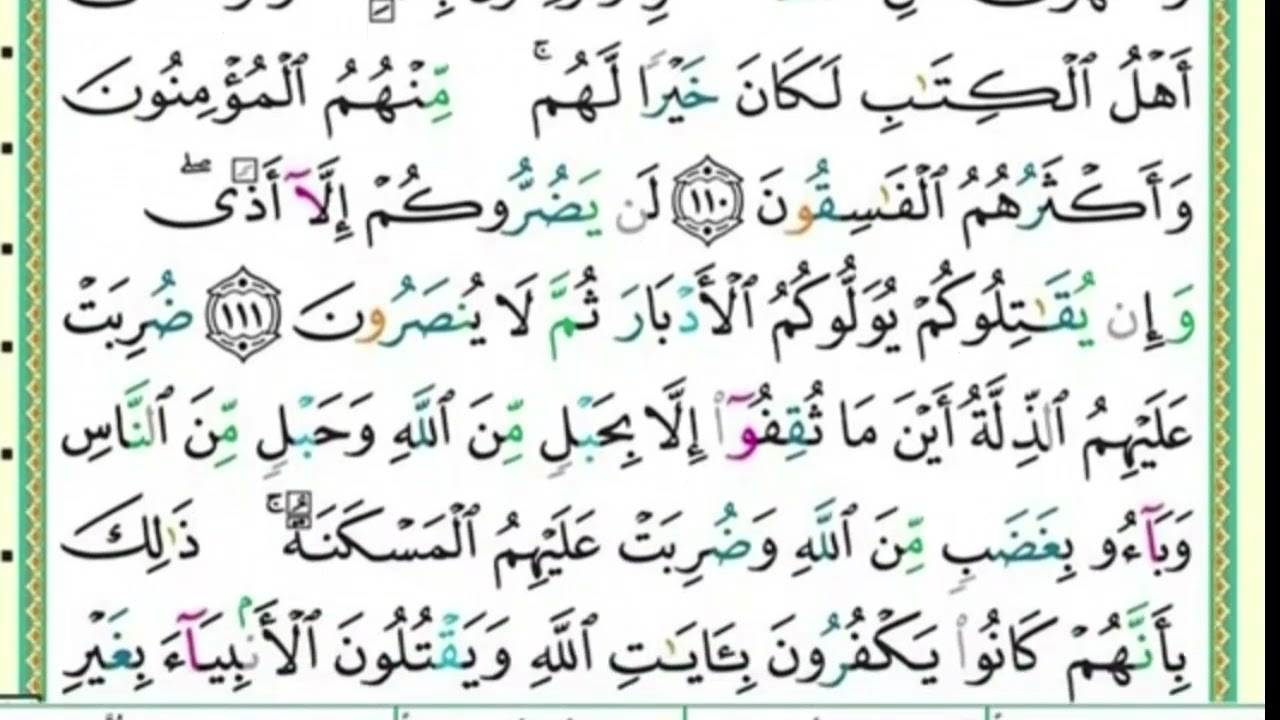 أَهْلُ ٱلْكِتَٰبِ لَكَانَ خَيْرًا لَّهُم ۚ مِّنْهُمُ ٱلْمُؤْمِنُونَ
وَأَكْثَرُهُمُ ٱلْفَٰسِقُونَ ١١٠ لَن يَضُرُّوكُمْ إِلَّآ أَذًى ۖ
وَإِن يُقَٰتِلُوكُمْ يُوَلُّوكُمُ ٱلْأَدْبَارَ ثُمَّ لَا يُنصَرُونَ ١١١ ضُرِبَتْ
عَلَيْهِمُ ٱلذِّلَّةُ أَيْنَ مَا ثُقِفُوٓا۟ إِلَّا بِحَبْلٍ مِّنَ ٱللَّهِ وَحَبْلٍ مِّنَ ٱلنَّاسِ
وَبَآءُو بِغَضَبٍ مِّنَ ٱللَّهِ وَضُرِبَتْ عَلَيْهِمُ ٱلْمَسْكَنَةُ ۚ ذَٰلِكَ
بِأَنَّهُمْ كَانُوا۟ يَكْفُرُونَ بِـَٔايَٰتِ ٱللَّهِ وَيَقْتُلُونَ ٱلْأَنۢبِيَآءَ بِغَيْرِ